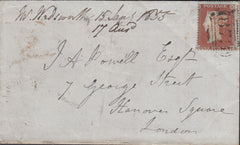 Mr Wadsworth 15 Jany 1855
17 Ansd
POSTAGE
J A Powell Esqr
7 George Street
Hanover Square
London